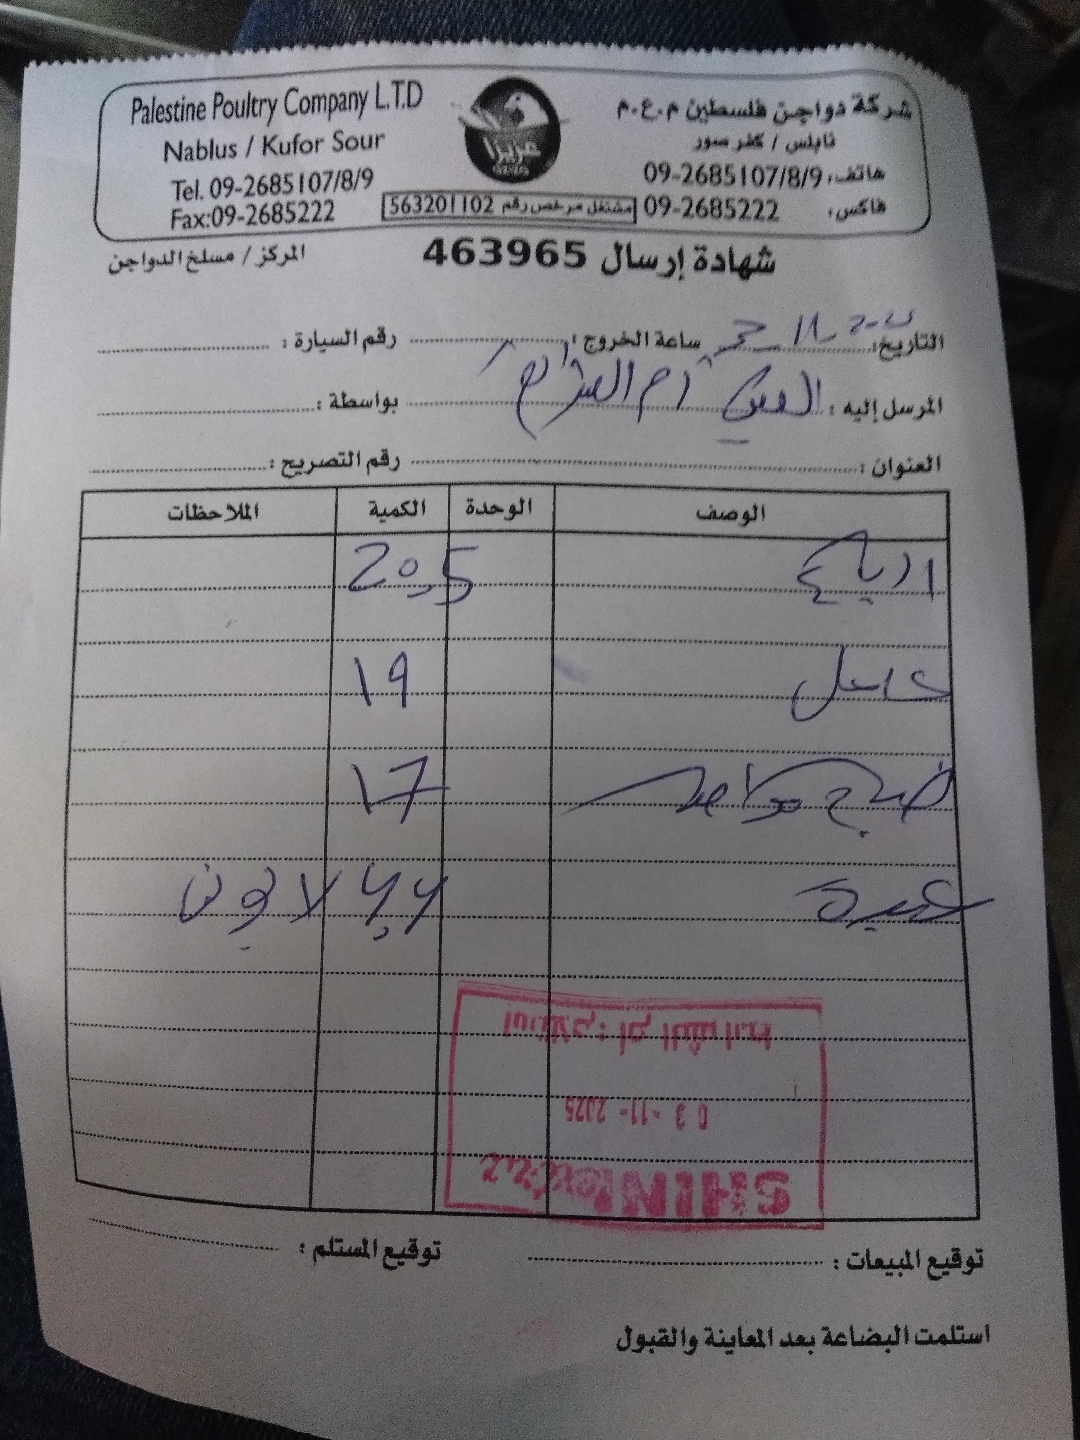 Palestine Poultry Company L.T.D
Nablus / Kufor Sour
Tel. 09-2685107/8/9
Fax:09-2685222
شركة دواجن فلسطين م.ع.م
نابلس / كفر صور
هاتف: 09-2685107/8/9
فاكس: 09-2685222
مشتغل مرخص رقم 563201102
شهادة إرسال 463965
المركز / مسلخ الدواجن
التاريخ: 3 11 ساعة الخروج: رقم السيارة:
المرسل إليه: ام بواسطة:
العنوان: رقم التصريح:
الوصف الوحدة الكمية الملاحظات
ارباع 20,5
كامل 19
17
66
استلام: ام الشرايط
03 -11- 2025
SHINI
توقيع المبيعات: توقيع المستلم:
استلمت البضاعة بعد المعاينة والقبول